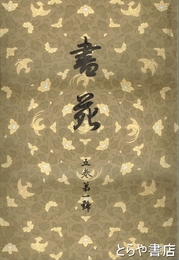 書苑
五巻第一號
とらや書店